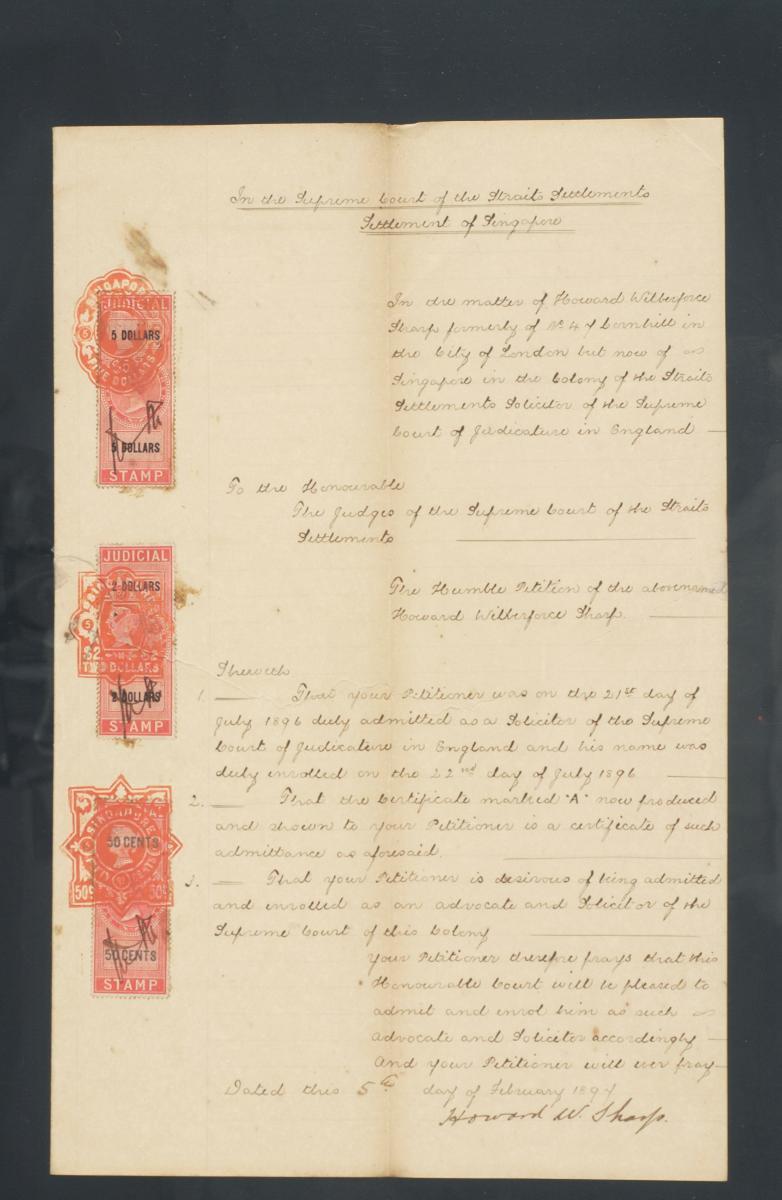 In the Supreme Court of the Straits Settlements
Settlement of Singapore
In the matter of Howard Wilberforce
Sharp formerly of No 4 Cornhill in
the City of London but now of
Singapore in the Colony of the Straits
Settlements Solicitor of the Supreme
Court of Judicature in England
To the Honourable
The Judges of the Supreme Court of the Straits
Settlements
The Humble Petition of the abovenamed
Howard Wilberforce Sharp.
Sheweth
1. That your Petitioner was on the 21st day of
July 1896 duly admitted as a Solicitor of the Supreme
Court of Judicature in England and his name was
duly enrolled on the 22nd day of July 1896
2. That the Certificate marked "A" now produced
and shown to your Petitioner is a certificate of such
admittance as aforesaid.
3. That your Petitioner is desirous of being admitted
and enrolled as an advocate and Solicitor of the
Supreme Court of this Colony
Your Petitioner therefore prays that this
Honourable Court will be pleased to
admit and enrol him as such
Advocate and Solicitor accordingly
And your Petitioner will ever pray
Dated this 5th day of February 1897
Howard W. Sharp.
SINGAPORE
JUDICIAL
5 DOLLARS
FIVE DOLLARS
5 DOLLARS
STAMP
JUDICIAL
2 DOLLARS
$2
TWO DOLLARS
2 DOLLARS
STAMP
JUDICIAL
SINGAPORE
50 CENTS
50c
50c
50 CENTS
STAMP